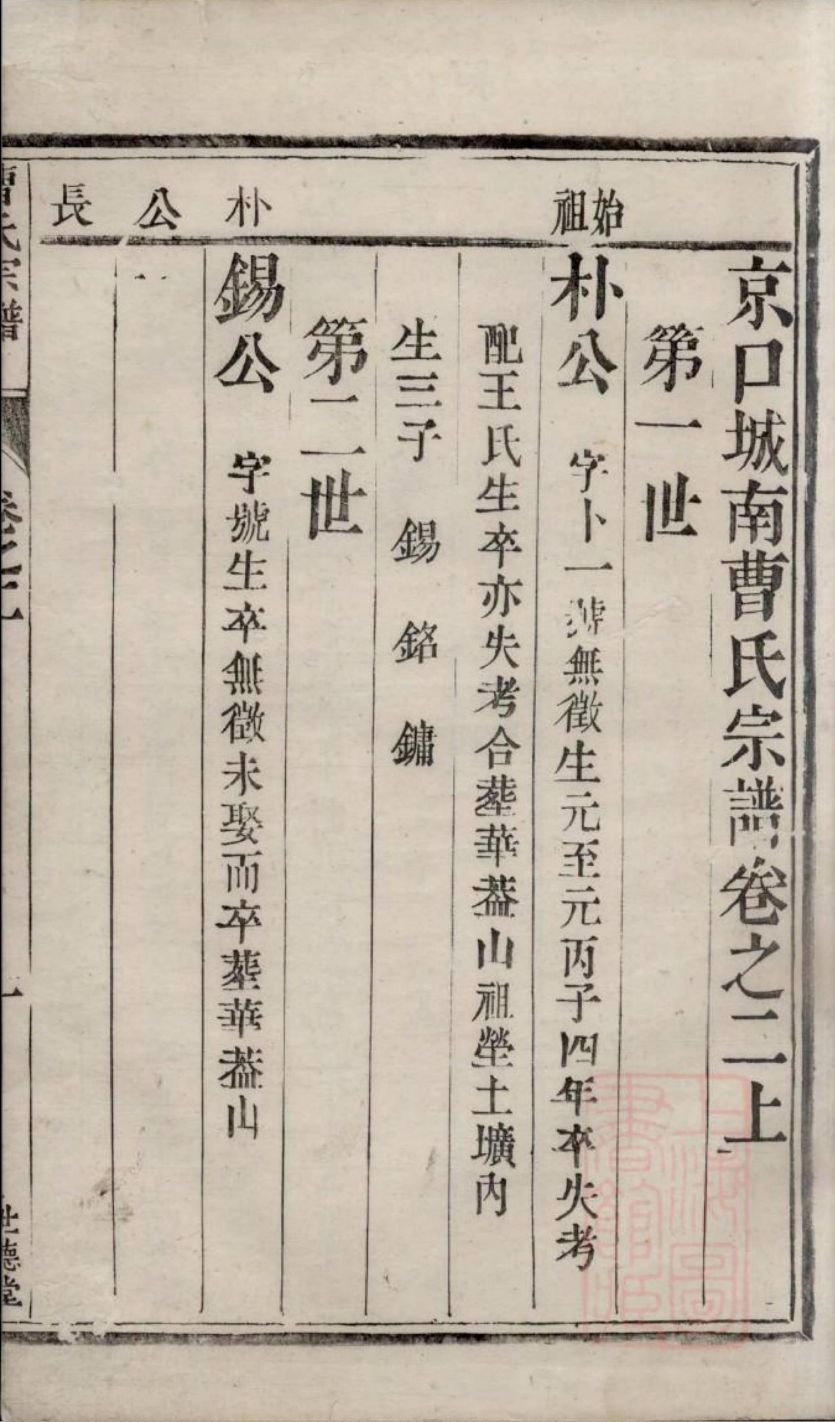 京口城南曹氏宗譜卷之二上
第一世
始祖
朴公 字卜一號無徵生元至元丙子四年卒失考
配王氏生卒亦失考合塟華葢山祖塋土壙內
生三子 錫 銘 鏞
第二世
朴公長
錫公 字號生卒無徵未娶而卒塟華葢山
曹氏宗譜
卷之二上
一
世德堂
上海圖書館藏